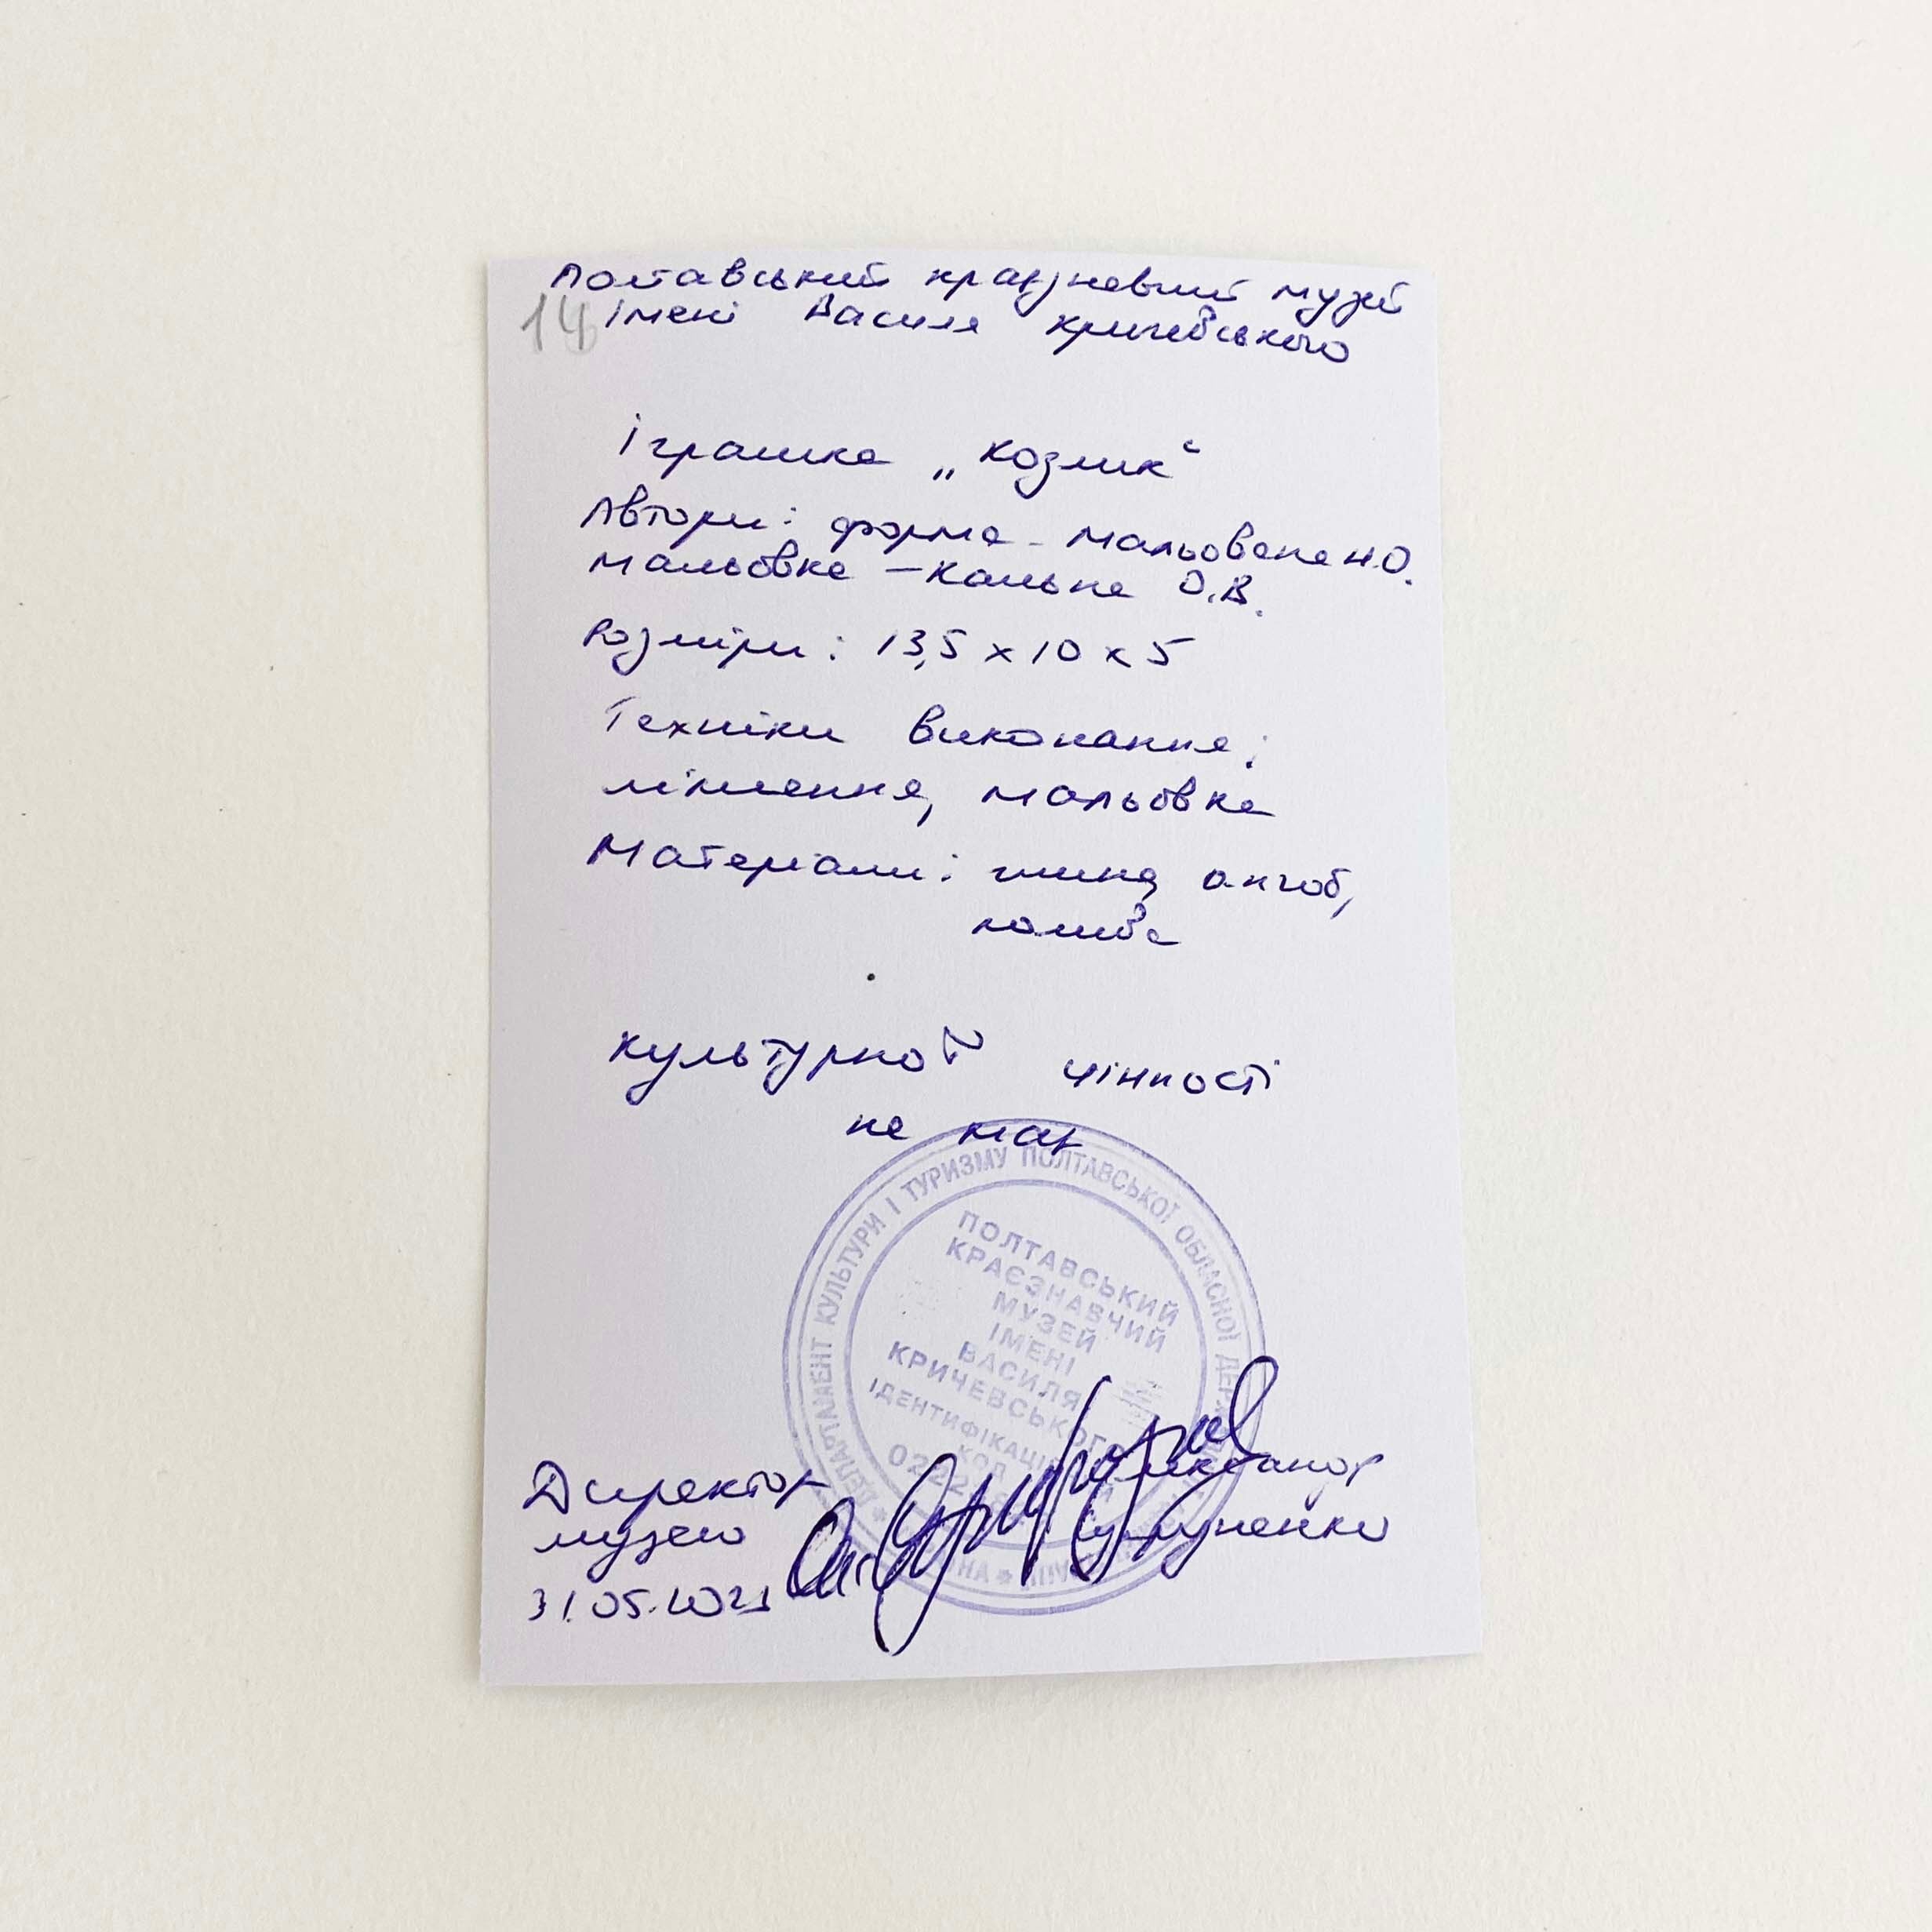 Полтавський краєзнавчий музей
14 імені Василя Кричевського
Іграшка „Козлик“
Автори: форма - Мальована Н.О.
мальовка – Кальна О.В.
Розміри: 13,5 х 10 х 5
Техніки виконання:
ліплення, мальовка
Матеріали: глина, ангоб,
полива
культурної цінності
не має
ДЕПАРТАМЕНТ КУЛЬТУРИ І ТУРИЗМУ ПОЛТАВСЬКОЇ ОБЛАСНОЇ
ПОЛТАВСЬКИЙ
КРАЄЗНАВЧИЙ
МУЗЕЙ
ІМЕНІ
ВАСИЛЯ
КРИЧЕВСЬКОГО
КОД
Директор
музею
Олександр
Супруненко
31.05.2021